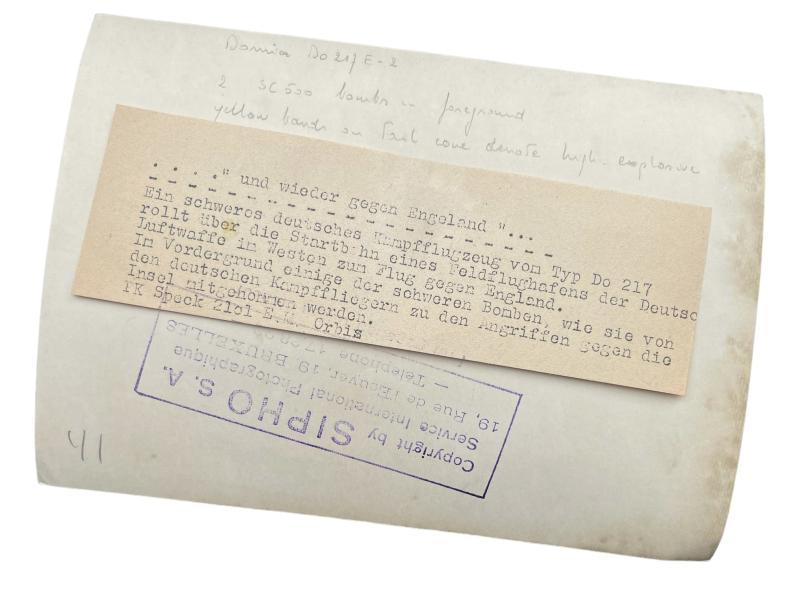 Dornier Do 217 E-2
2 SC 500 bombs in foreground
yellow bands on tail cone denote high-explosive
. . . ." und wieder gegen Engeland "...
Ein schweres deutsches Kampfflugzeug vom Typ Do 217
rollt über die Startbahn eines Feldflughafens der Deutsc
Luftwaffe im Westen zum Flug gegen England.
Im Vordergrund einige der schweren Bomben, wie sie von
den deutschen Kampffliegern zu den Angriffen gegen die
Insel mitgenommen werden.
PK Speck 2101 E.K. Orbis
Copyright by SIPHO S.A.
Service International Photographique
19, Rue de l'Ecuyer, 19, BRUXELLES
— Téléphone
41